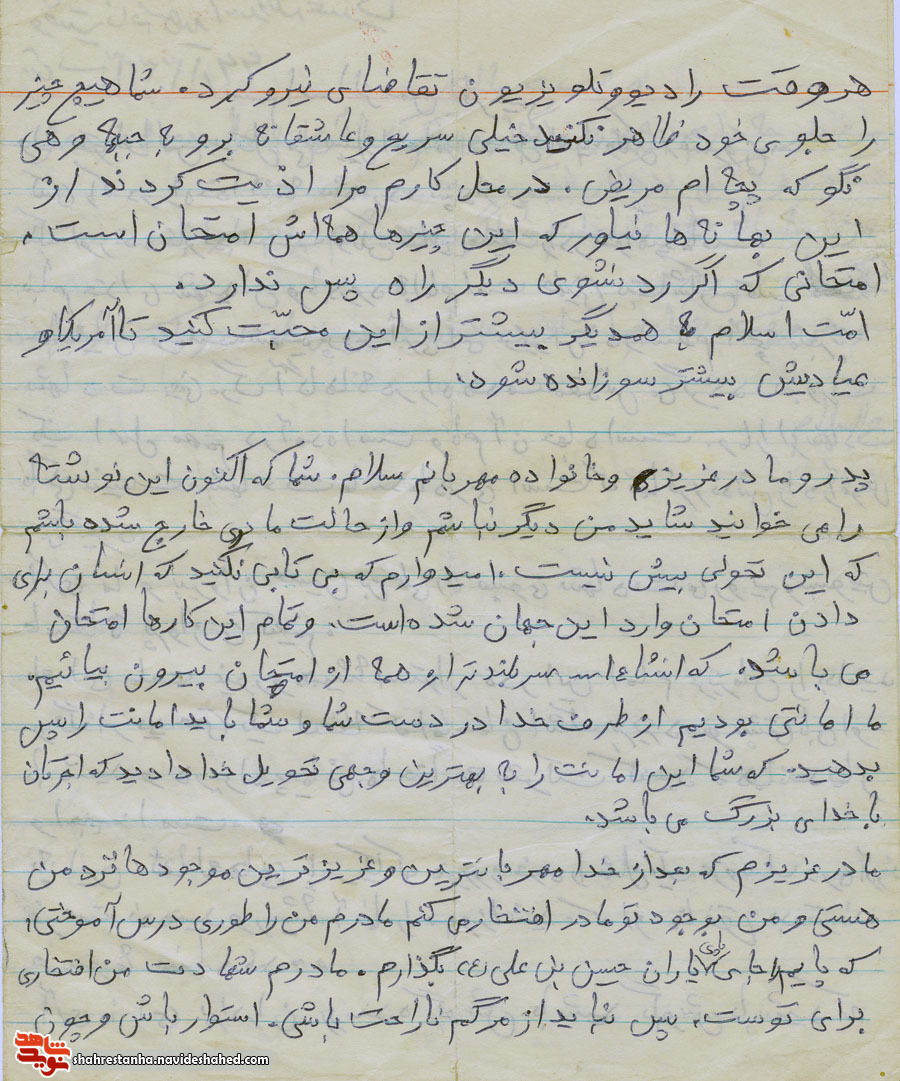 هر وقت رادیو و تلویزیون تقاضای نیرو کرد. شما هیچ چیز
را جلوی خود ظاهر نکنید خیلی سریع و عاشقانه برو به جبهه و هی
نگو که بچه ام مریض. در محل کارم مرا اذیت کردند از
این بهانه ها نیاور که این چیزها همه اش امتحان است.
امتحانی که اگر رد نشوی دیگر راه پس ندارد.
امّت اسلام به همدیگر بیشتر از این محبّت کنید تا آمریکا و
عیادیش بیشتر سوزانده شود.
پدر و مادر عزیزم و خانواده مهربانم سلام. شما که اکنون این نوشته
را می خوانید شاید من دیگر نباشم و از حالت مادی خارج شده باشم
که این تحولی بیش نیست. امیدوارم که بی تابی نکنید که انسان برای
دادن امتحان وارد این جهان شده است. و تمام این کارها امتحان
می باشد. که انشاءالله سربلندتر از همه از امتحان بیرون بیائیم.
ما امانتی بودیم از طرف خدا در دست شما و شما باید امانت را پس
بدهید. که شما این امانت را به بهترین وجهی تحویل خدا دادید که اجرتان
با خدای بزرگ می باشد.
مادر عزیزم که بعد از خدا مهربانترین و عزیزترین موجودها نزد من
هستی و من بوجود تو مادر افتخار می کنم مادرم من را طوری درس آموختی،
که پایم را جای پای یاران حسین بن علی (ع) بگذارم. مادرم شهادت من افتخاری
برای توست. پس نباید از مرگم ناراحت باشی. استوار باش و چون
نوید شاهد
shahrestanha.navideshahed.com